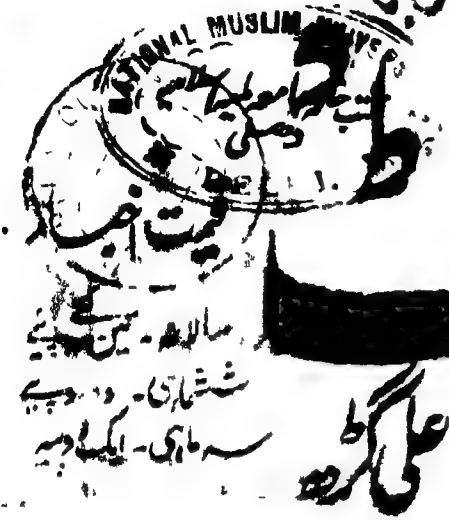 NATIONAL MUSLIM
جامعہ ملیہ اسلامیہ
دہلی
DELHI.
قیمت اخبار
سالانہ - تین روپے
ششماہی - دو روپے
سہ ماہی - ایک روپیہ
علی گڑھ